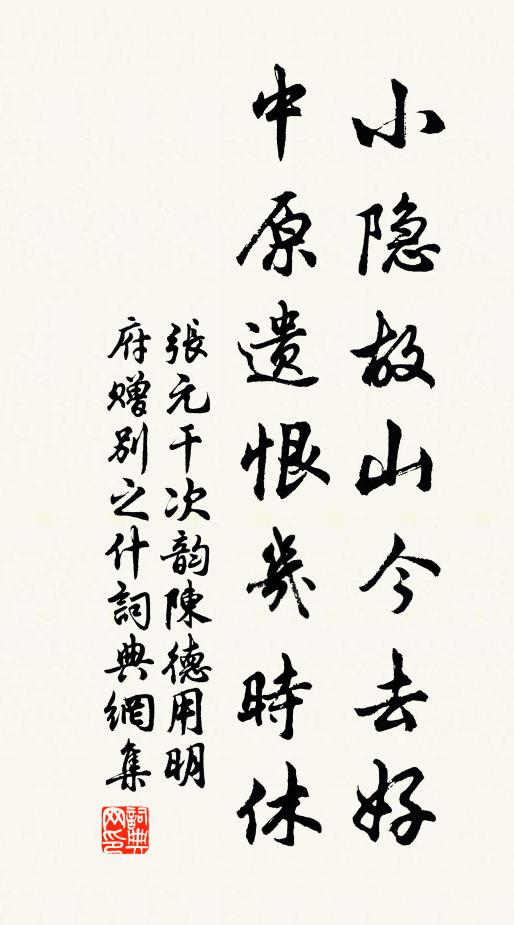 小隐故山今去好
中原遗恨幾時休
張元干次韵陳德用明
府赠别之什詞典網集
詞典
网印